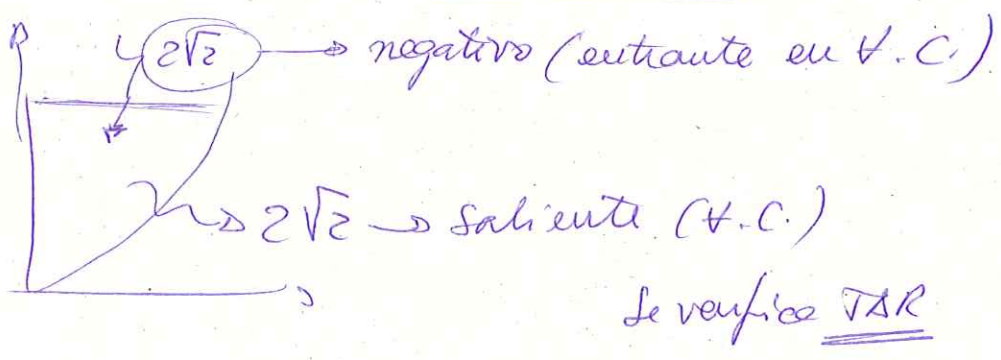 2√2 → negativo (entrante en ∀.C.)
2√2 → Saliente (∀.C.)
Se verifica TAR